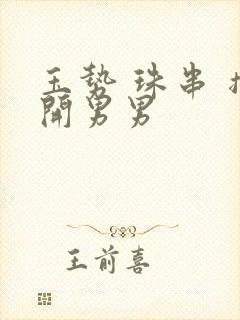 玉势 珠串
開男男
王前喜